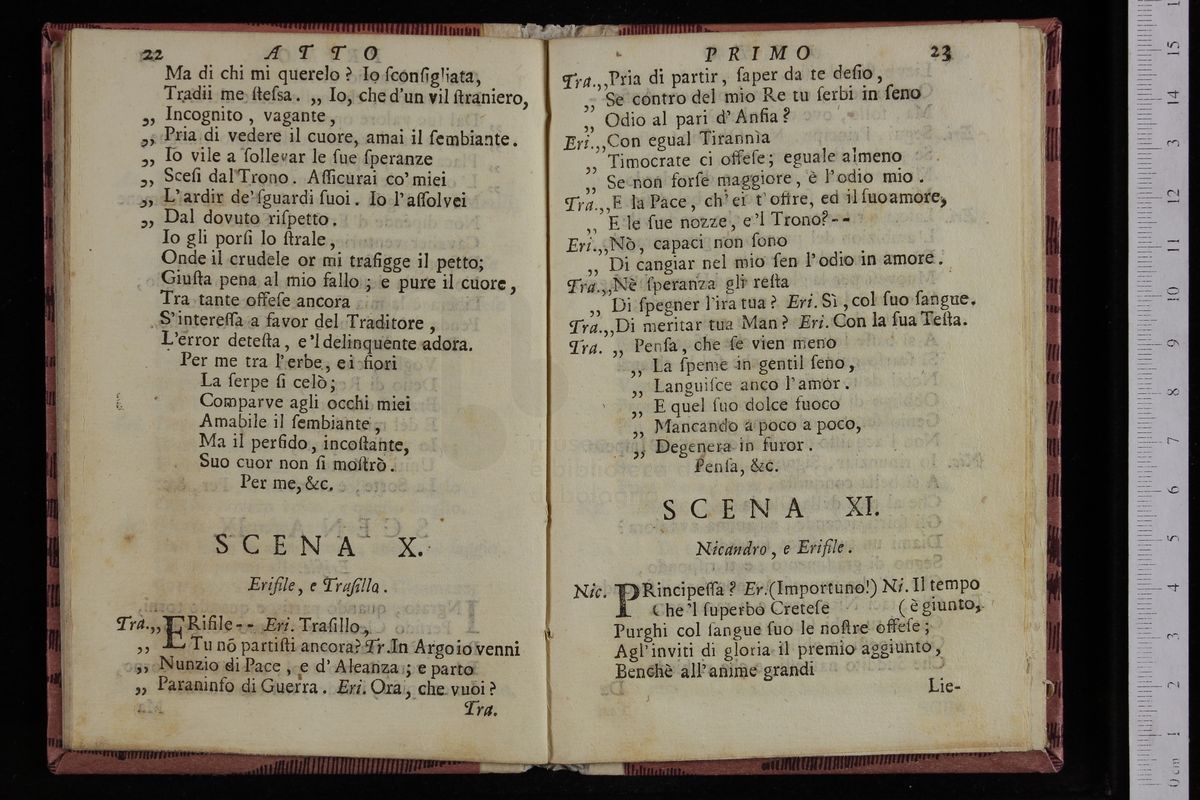 22 ATTO
Ma di chi mi querelo? Io ſconſigliata,
Tradii me ſteſsa. „ Io, che d'un vil ſtraniero,
„ Incognito, vagante,
„ Pria di vedere il cuore, amai il ſembiante.
„ Io vile a ſollevar le ſue ſperanze
„ Sceſi dal Trono. Aſſicurai co' miei
„ L'ardir de' ſguardi ſuoi. Io l'aſſolvei
„ Dal dovuto riſpetto.
Io gli porſi lo ſtrale,
Onde il crudele or mi trafigge il petto;
Giuſta pena al mio fallo; e pure il cuore,
Tra tante offeſe ancora
S'intereſſa a favor del Traditore,
L'error deteſta, e 'l delinquente adora.
Per me tra l'erbe, e i fiori
La ſerpe ſi celò;
Comparve agli occhi miei
Amabile il ſembiante,
Ma il perfido, incoſtante,
Suo cuor non ſi moſtrò.
Per me, &c.
SCENA X.
Erifile, e Traſillo.
Tra.„ERifile-- Eri. Traſillo,
„ Tu nõ partiſti ancora? Tr.In Argo io venni
„ Nunzio di Pace, e d'Aleanza; e parto
„ Paraninfo di Guerra. Eri. Ora, che vuoi?
Tra.
PRIMO 23
Tra.„Pria di partir, ſaper da te deſio,
„ Se contro del mio Re tu ſerbi in ſeno
„ Odio al pari d'Anſia?
Eri.„Con egual Tirannia
„ Timocrate ci offeſe; eguale almeno
„ Se non forſe maggiore, è l'odio mio.
Tra.„E la Pace, ch'ei t'offre, ed il ſuo amore,
„ E le ſue nozze, e 'l Trono?--
Eri.„Nò, capaci non ſono
„ Di cangiar nel mio ſen l'odio in amore.
Tra.„Nè ſperanza gli reſta
„ Di ſpegner l'ira tua? Eri. Sì, col ſuo ſangue.
Tra.„Di meritar tua Man? Eri. Con la ſua Teſta.
Tra. „ Penſa, che ſe vien meno
„ La ſpeme in gentil ſeno,
„ Languiſce anco l'amor.
„ E quel ſuo dolce fuoco
„ Mancando a poco a poco,
„ Degenera in furor.
Penſa, &c.
SCENA XI.
Nicandro, e Erifile.
Nic. PRincipeſſa? Er.(Importuno!) Ni. Il tempo
Che 'l ſuperbo Creteſe (è giunto,
Purghi col ſangue ſuo le noſtre offeſe;
Agl'inviti di gloria il premio aggiunto,
Benchè all'anime grandi
Lie-